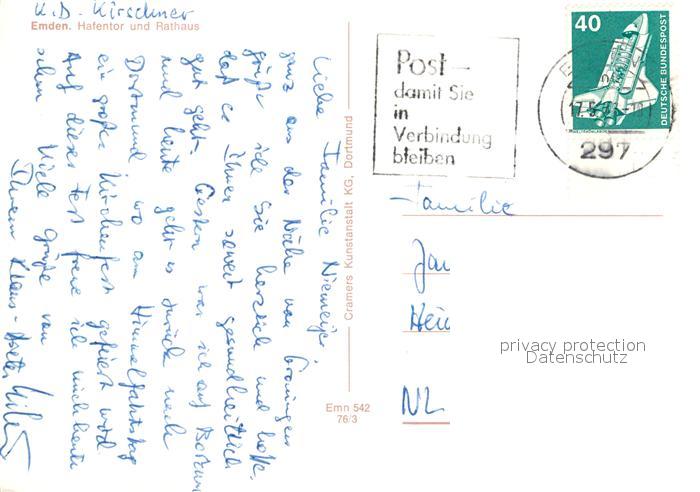 K.D. Kirschner
Emden. Hafentor und Rathaus
Liebe Familie Niemeijer,
ganz aus der Nähe von Groningen
grüße ich Sie herzlich und hoffe,
daß es Ihnen soweit gesundheitlich
gut geht. Gestern war ich auf Borkum
und heute geht es zurück nach
Dortmund, wo am Himmelfahrtstag
ein großes Kirchenfest gefeiert wird.
Auf dieses Fest freue ich mich heute
schon. Viele Grüße von
Ihrem Klaus-Dieter
Cramers Kunstanstalt KG, Dortmund
Emn 542
76/3
Post –
damit Sie
in
Verbindung
bleiben
40
DEUTSCHE BUNDESPOST
297
Familie
Jan
Hei
NL
privacy protection
Datenschutz